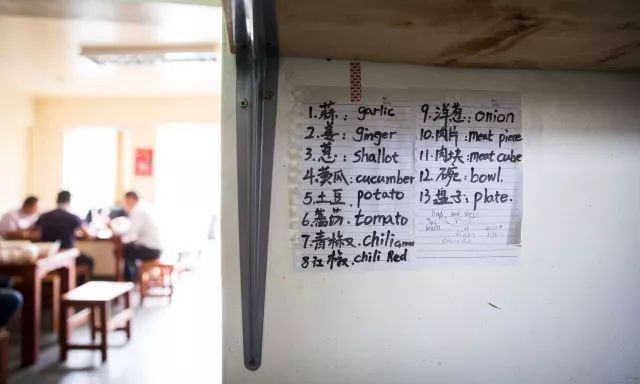 1.蒜: garlic
2.姜: ginger
3.葱: shallot
4.黄瓜: cucumber
5.土豆. potato
6.蕃茄. tomato
7.青椒. chili Green
8.红椒. chili Red
9.洋葱: onion
10.肉片: meat piece
11.肉块: meat cube
12.碗: bowl.
13.盘子: plate.